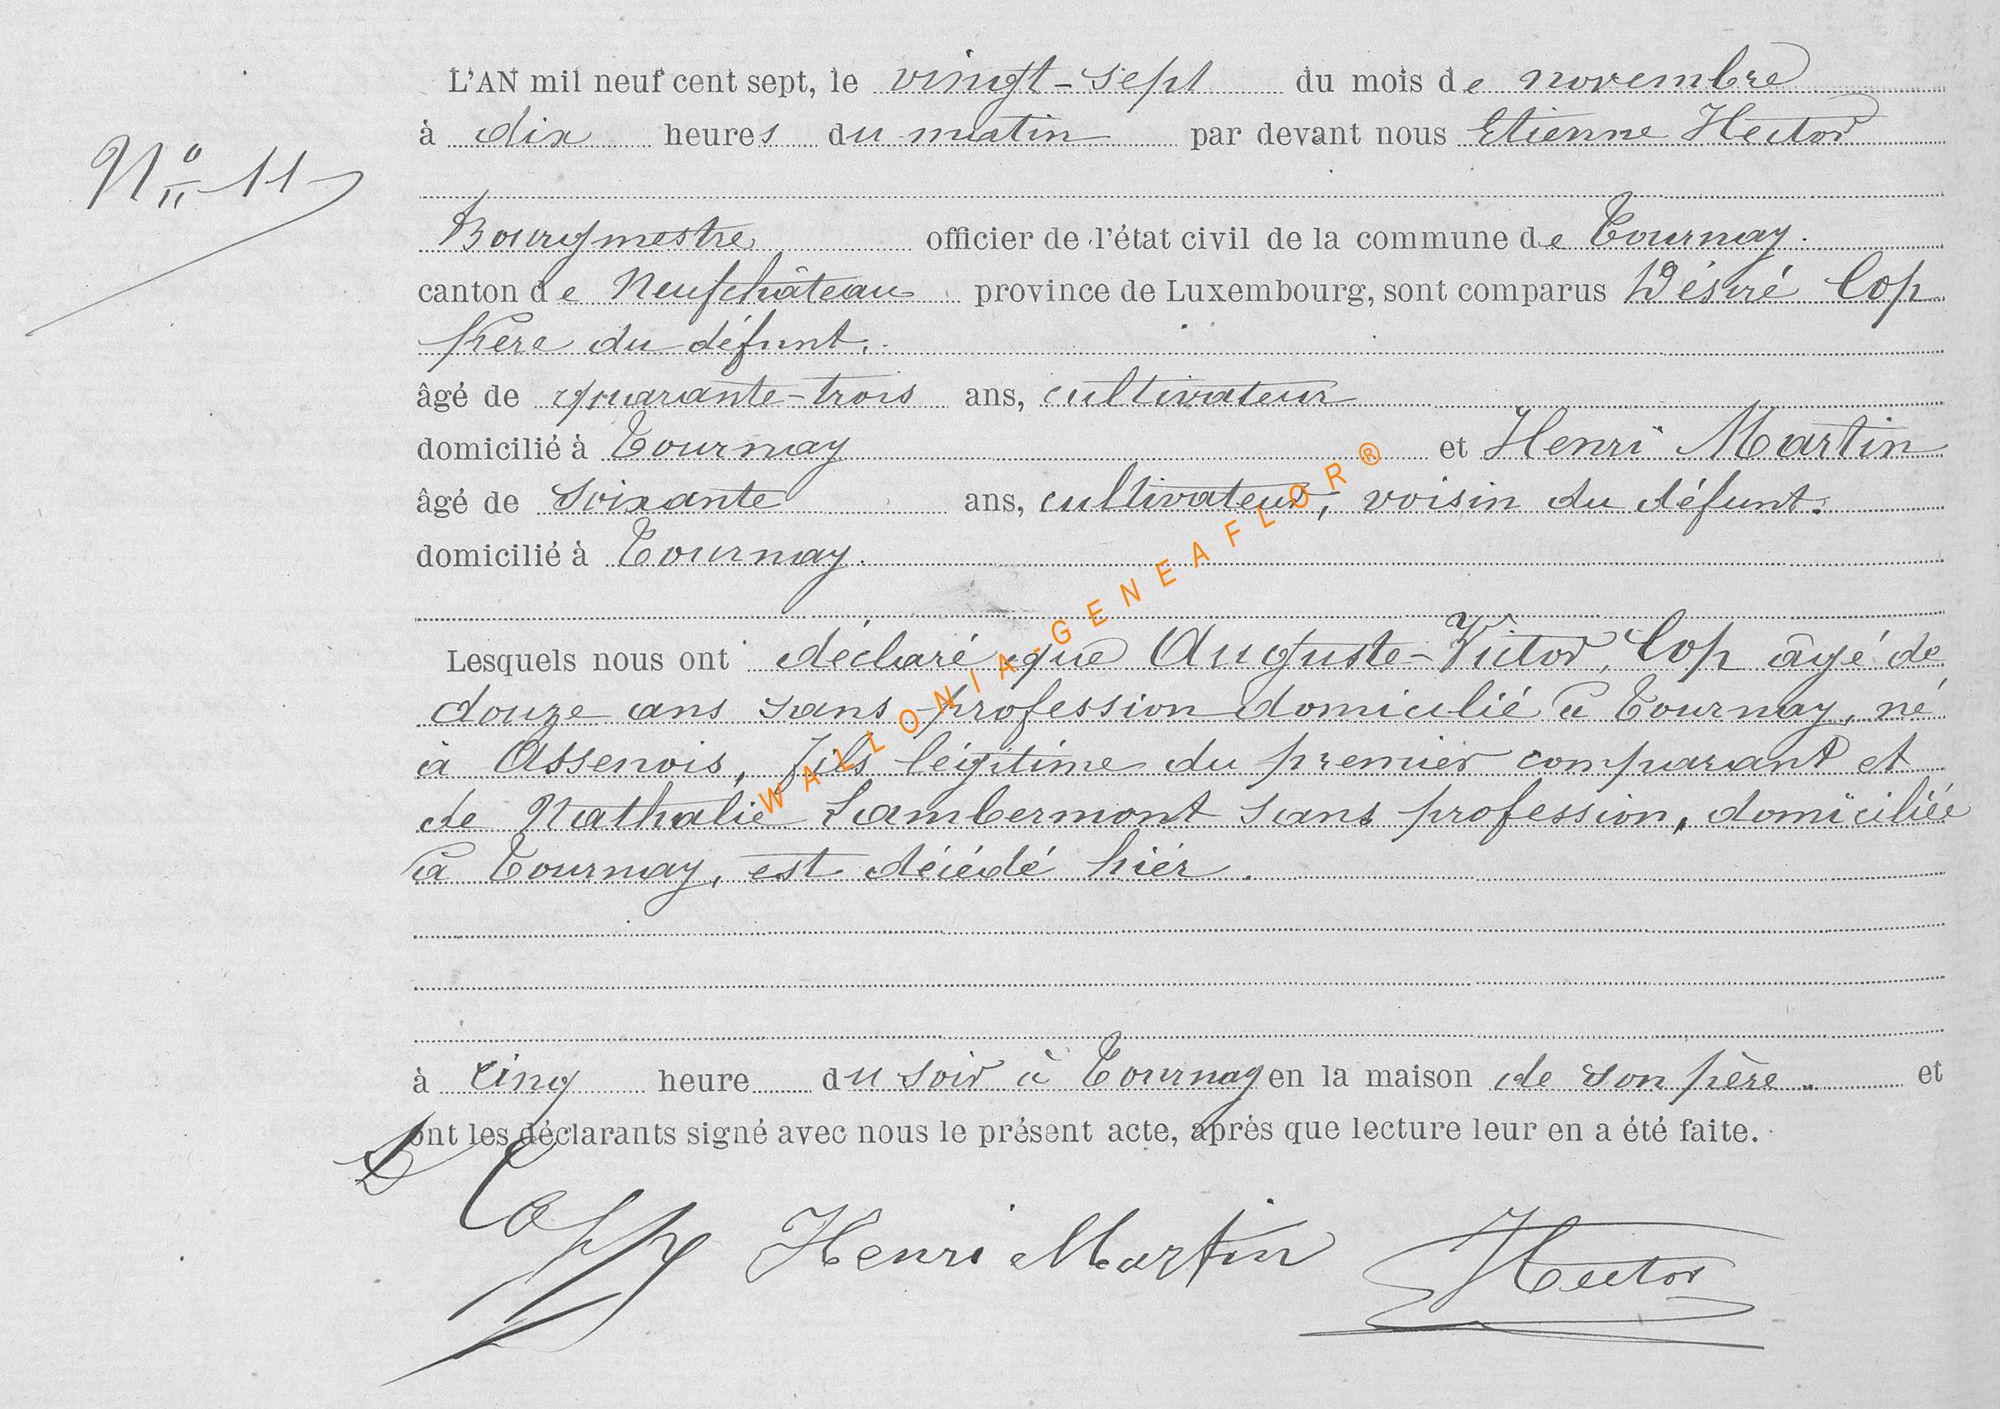 L'AN mil neuf cent sept, le vingt-sept du mois de novembre
N° 11
à dix heures du matin par devant nous Etienne Hector
Bourgmestre officier de l'état civil de la commune de Tournay.
canton de Neufchâteau province de Luxembourg, sont comparus Désiré Cop
père du défunt.
âgé de quarante-trois ans, cultivateur
domicilié à Tournay et Henri Martin
âgé de soixante ans, cultivateur, voisin du défunt.
domicilié à Tournay.
Lesquels nous ont déclaré que Auguste-Victor Cop âgé de
douze ans sans profession domicilié à Tournay, né
à Assenois, fils légitime du premier comparant et
de Nathalie Lambermont sans profession, domiciliée
à Tournay, est décédé hier.
à cinq heure du soir à Tournay en la maison de son père. et
ont les déclarants signé avec nous le présent acte, après que lecture leur en a été faite.
Henri Martin Hector
WALLONIA-GENEAFLOR®